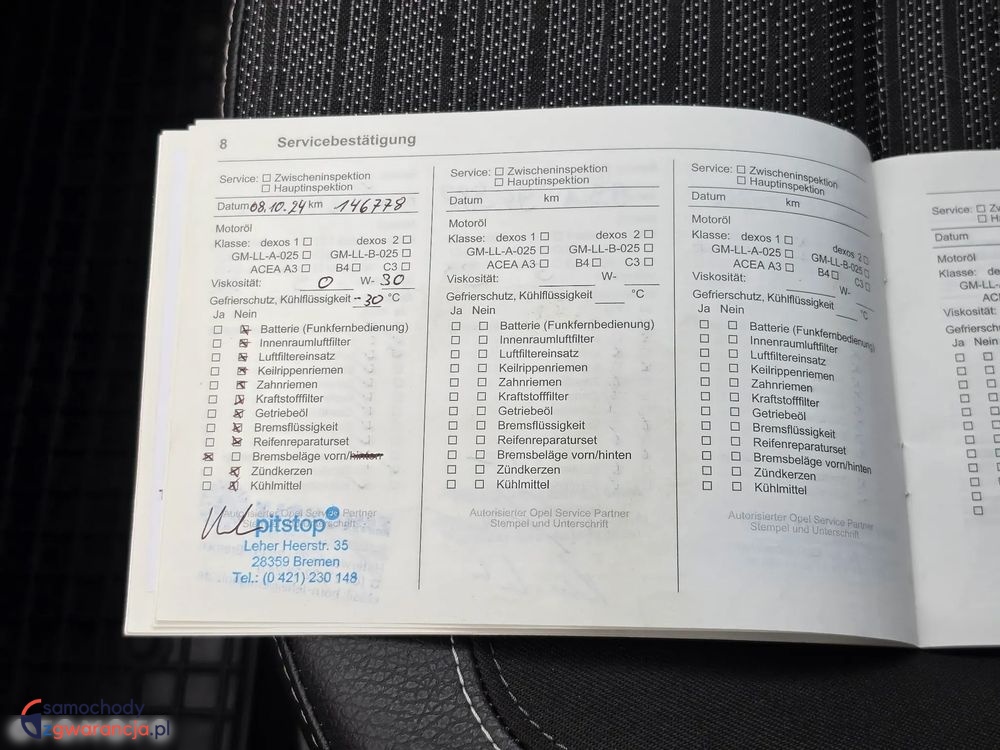 8 Servicebestätigung
Service: ☐ Zwischeninspektion
☐ Hauptinspektion
Datum 08.10.24 km 146778
Motoröl
Klasse: dexos 1 ☐ dexos 2 ☐
GM-LL-A-025 ☐ GM-LL-B-025 ☐
ACEA A3 ☐ B4 ☐ C3 ☐
Viskosität: 0 W- 30
Gefrierschutz, Kühlflüssigkeit -30 °C
Ja Nein
☐ ☒ Batterie (Funkfernbedienung)
☐ ☒ Innenraumluftfilter
☐ ☒ Luftfiltereinsatz
☐ ☒ Keilrippenriemen
☐ ☒ Zahnriemen
☐ ☒ Kraftstofffilter
☐ ☒ Getriebeöl
☐ ☒ Bremsflüssigkeit
☐ ☒ Reifenreparaturset
☒ ☐ Bremsbeläge vorn/hinten
☐ ☒ Zündkerzen
☐ ☒ Kühlmittel
Autorisierter Opel Service Partner
Stempel und Unterschrift
pitstop.de
Leher Heerstr. 35
28359 Bremen
Tel.: (0 421) 230 148
Service: ☐ Zwischeninspektion
☐ Hauptinspektion
Datum km
Motoröl
Klasse: dexos 1 ☐ dexos 2 ☐
GM-LL-A-025 ☐ GM-LL-B-025 ☐
ACEA A3 ☐ B4 ☐ C3 ☐
Viskosität: W-
Gefrierschutz, Kühlflüssigkeit °C
Ja Nein
☐ ☐ Batterie (Funkfernbedienung)
☐ ☐ Innenraumluftfilter
☐ ☐ Luftfiltereinsatz
☐ ☐ Keilrippenriemen
☐ ☐ Zahnriemen
☐ ☐ Kraftstofffilter
☐ ☐ Getriebeöl
☐ ☐ Bremsflüssigkeit
☐ ☐ Reifenreparaturset
☐ ☐ Bremsbeläge vorn/hinten
☐ ☐ Zündkerzen
☐ ☐ Kühlmittel
Autorisierter Opel Service Partner
Stempel und Unterschrift
Service: ☐ Zwischeninspektion
☐ Hauptinspektion
Datum km
Motoröl
Klasse: dexos 1 ☐ dexos 2 ☐
GM-LL-A-025 ☐ GM-LL-B-025 ☐
ACEA A3 ☐ B4 ☐ C3 ☐
Viskosität: W-
Gefrierschutz, Kühlflüssigkeit °C
Ja Nein
☐ ☐ Batterie (Funkfernbedienung)
☐ ☐ Innenraumluftfilter
☐ ☐ Luftfiltereinsatz
☐ ☐ Keilrippenriemen
☐ ☐ Zahnriemen
☐ ☐ Kraftstofffilter
☐ ☐ Getriebeöl
☐ ☐ Bremsflüssigkeit
☐ ☐ Reifenreparaturset
☐ ☐ Bremsbeläge vorn/hinten
☐ ☐ Zündkerzen
☐ ☐ Kühlmittel
Autorisierter Opel Service Partner
Stempel und Unterschrift
Service: ☐ Zw
☐ H
Datum
Motoröl
Klasse: de
GM-L
AC
Viskosität:
Gefriersch
Ja Nein
samochody
zgwarancja.pl